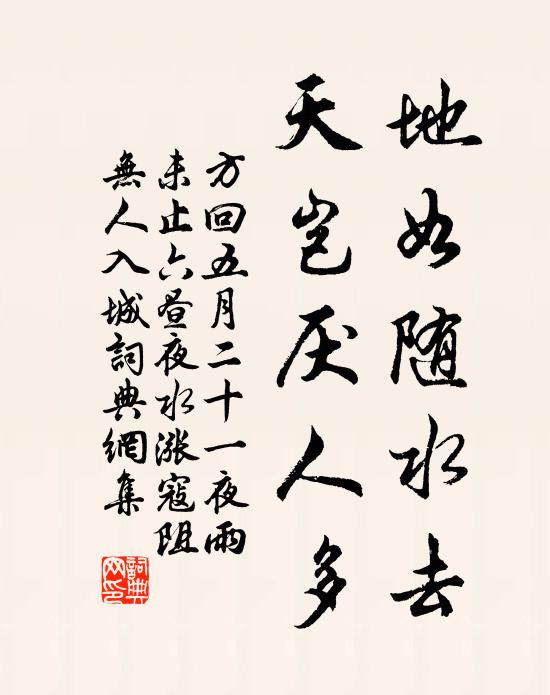 地如随水去
天岂厌人多
方回五月二十一夜雨
未止六昼夜水涨寇阻
無人入城詞典網集
詞典网印